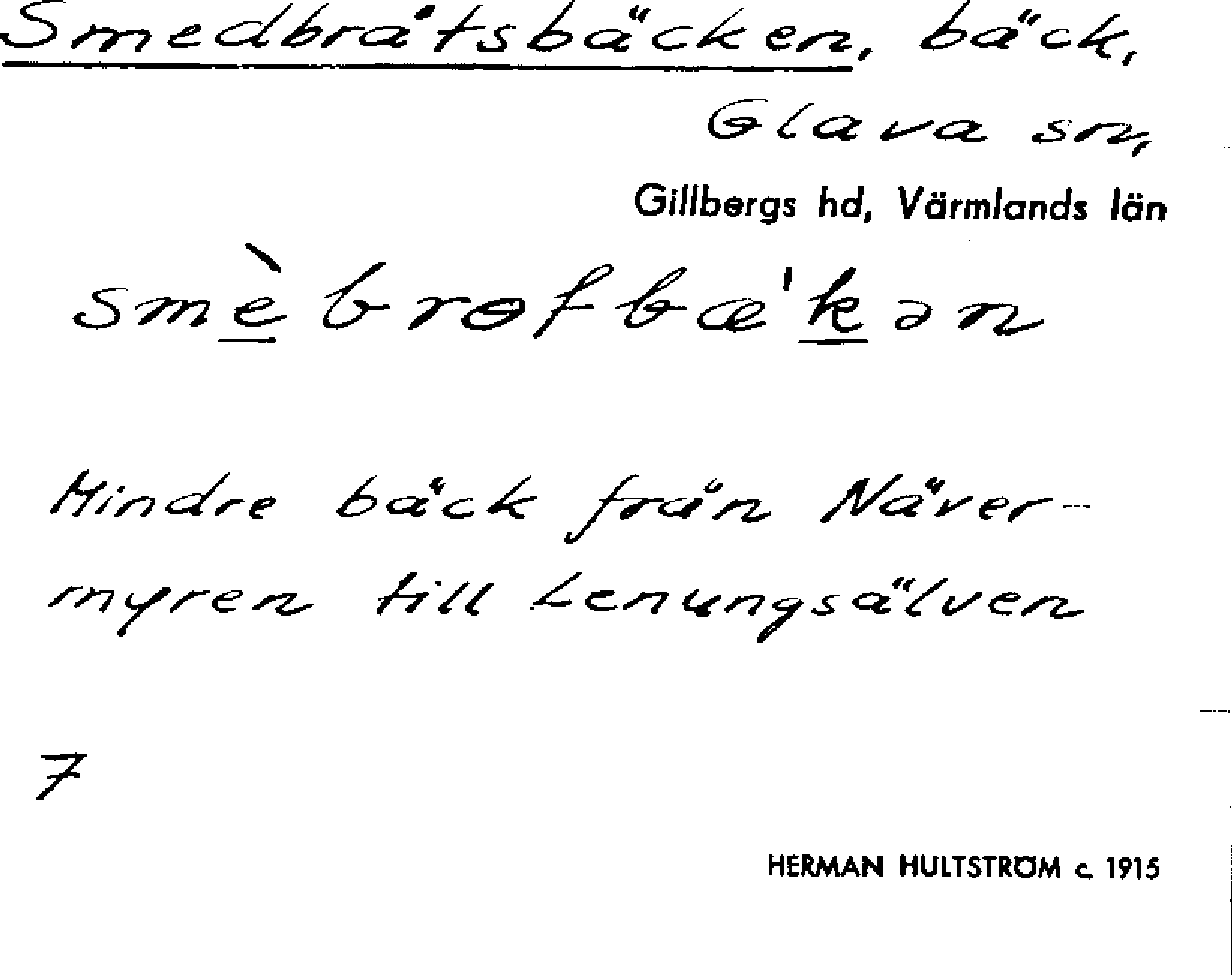 Smedbråtsbäcken, bäck,
Glava sn,
Gillbergs hd, Värmlands län
smè brɵf bæ'kən
Mindre bäck från Näver-
myren till Lenungsälven
7
HERMAN HULTSTRÖM c. 1915